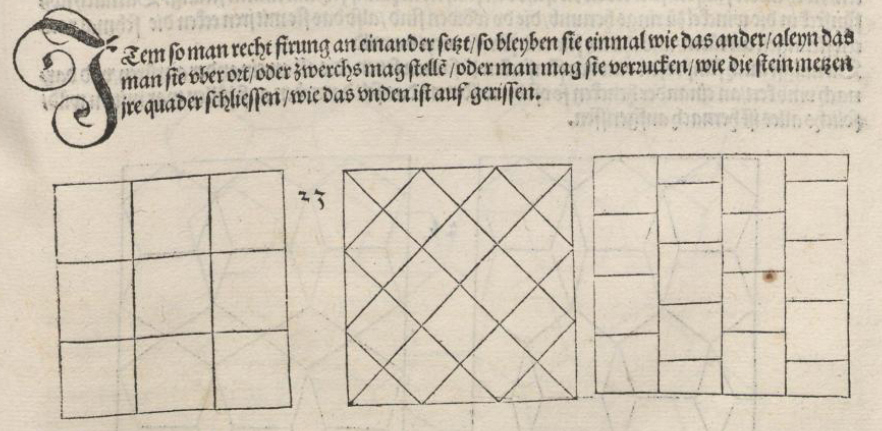 ITem so man recht firung an einander setzt/so bleyben sie einmal wie das ander/aleyn das
man sie vber ort/oder zwerchs mag stellē/oder man mag sie verrucken/wie die stein metzen
jre quader schliessen/wie das vnden ist auf gerissen.
23